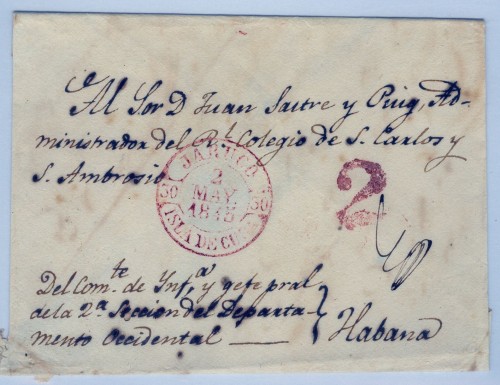 Al Sor D Juan Sastre y Puig, Ad-
ministrador del Rl Colegio de S. Carlos y
S. Ambrosio
JARUCO
2
MAY.
30 30
ISLA DE CUBA
2
Del Comte de Infa y gefe pral
de la 2a Seccion del Departa-
mento Occidental
Habana